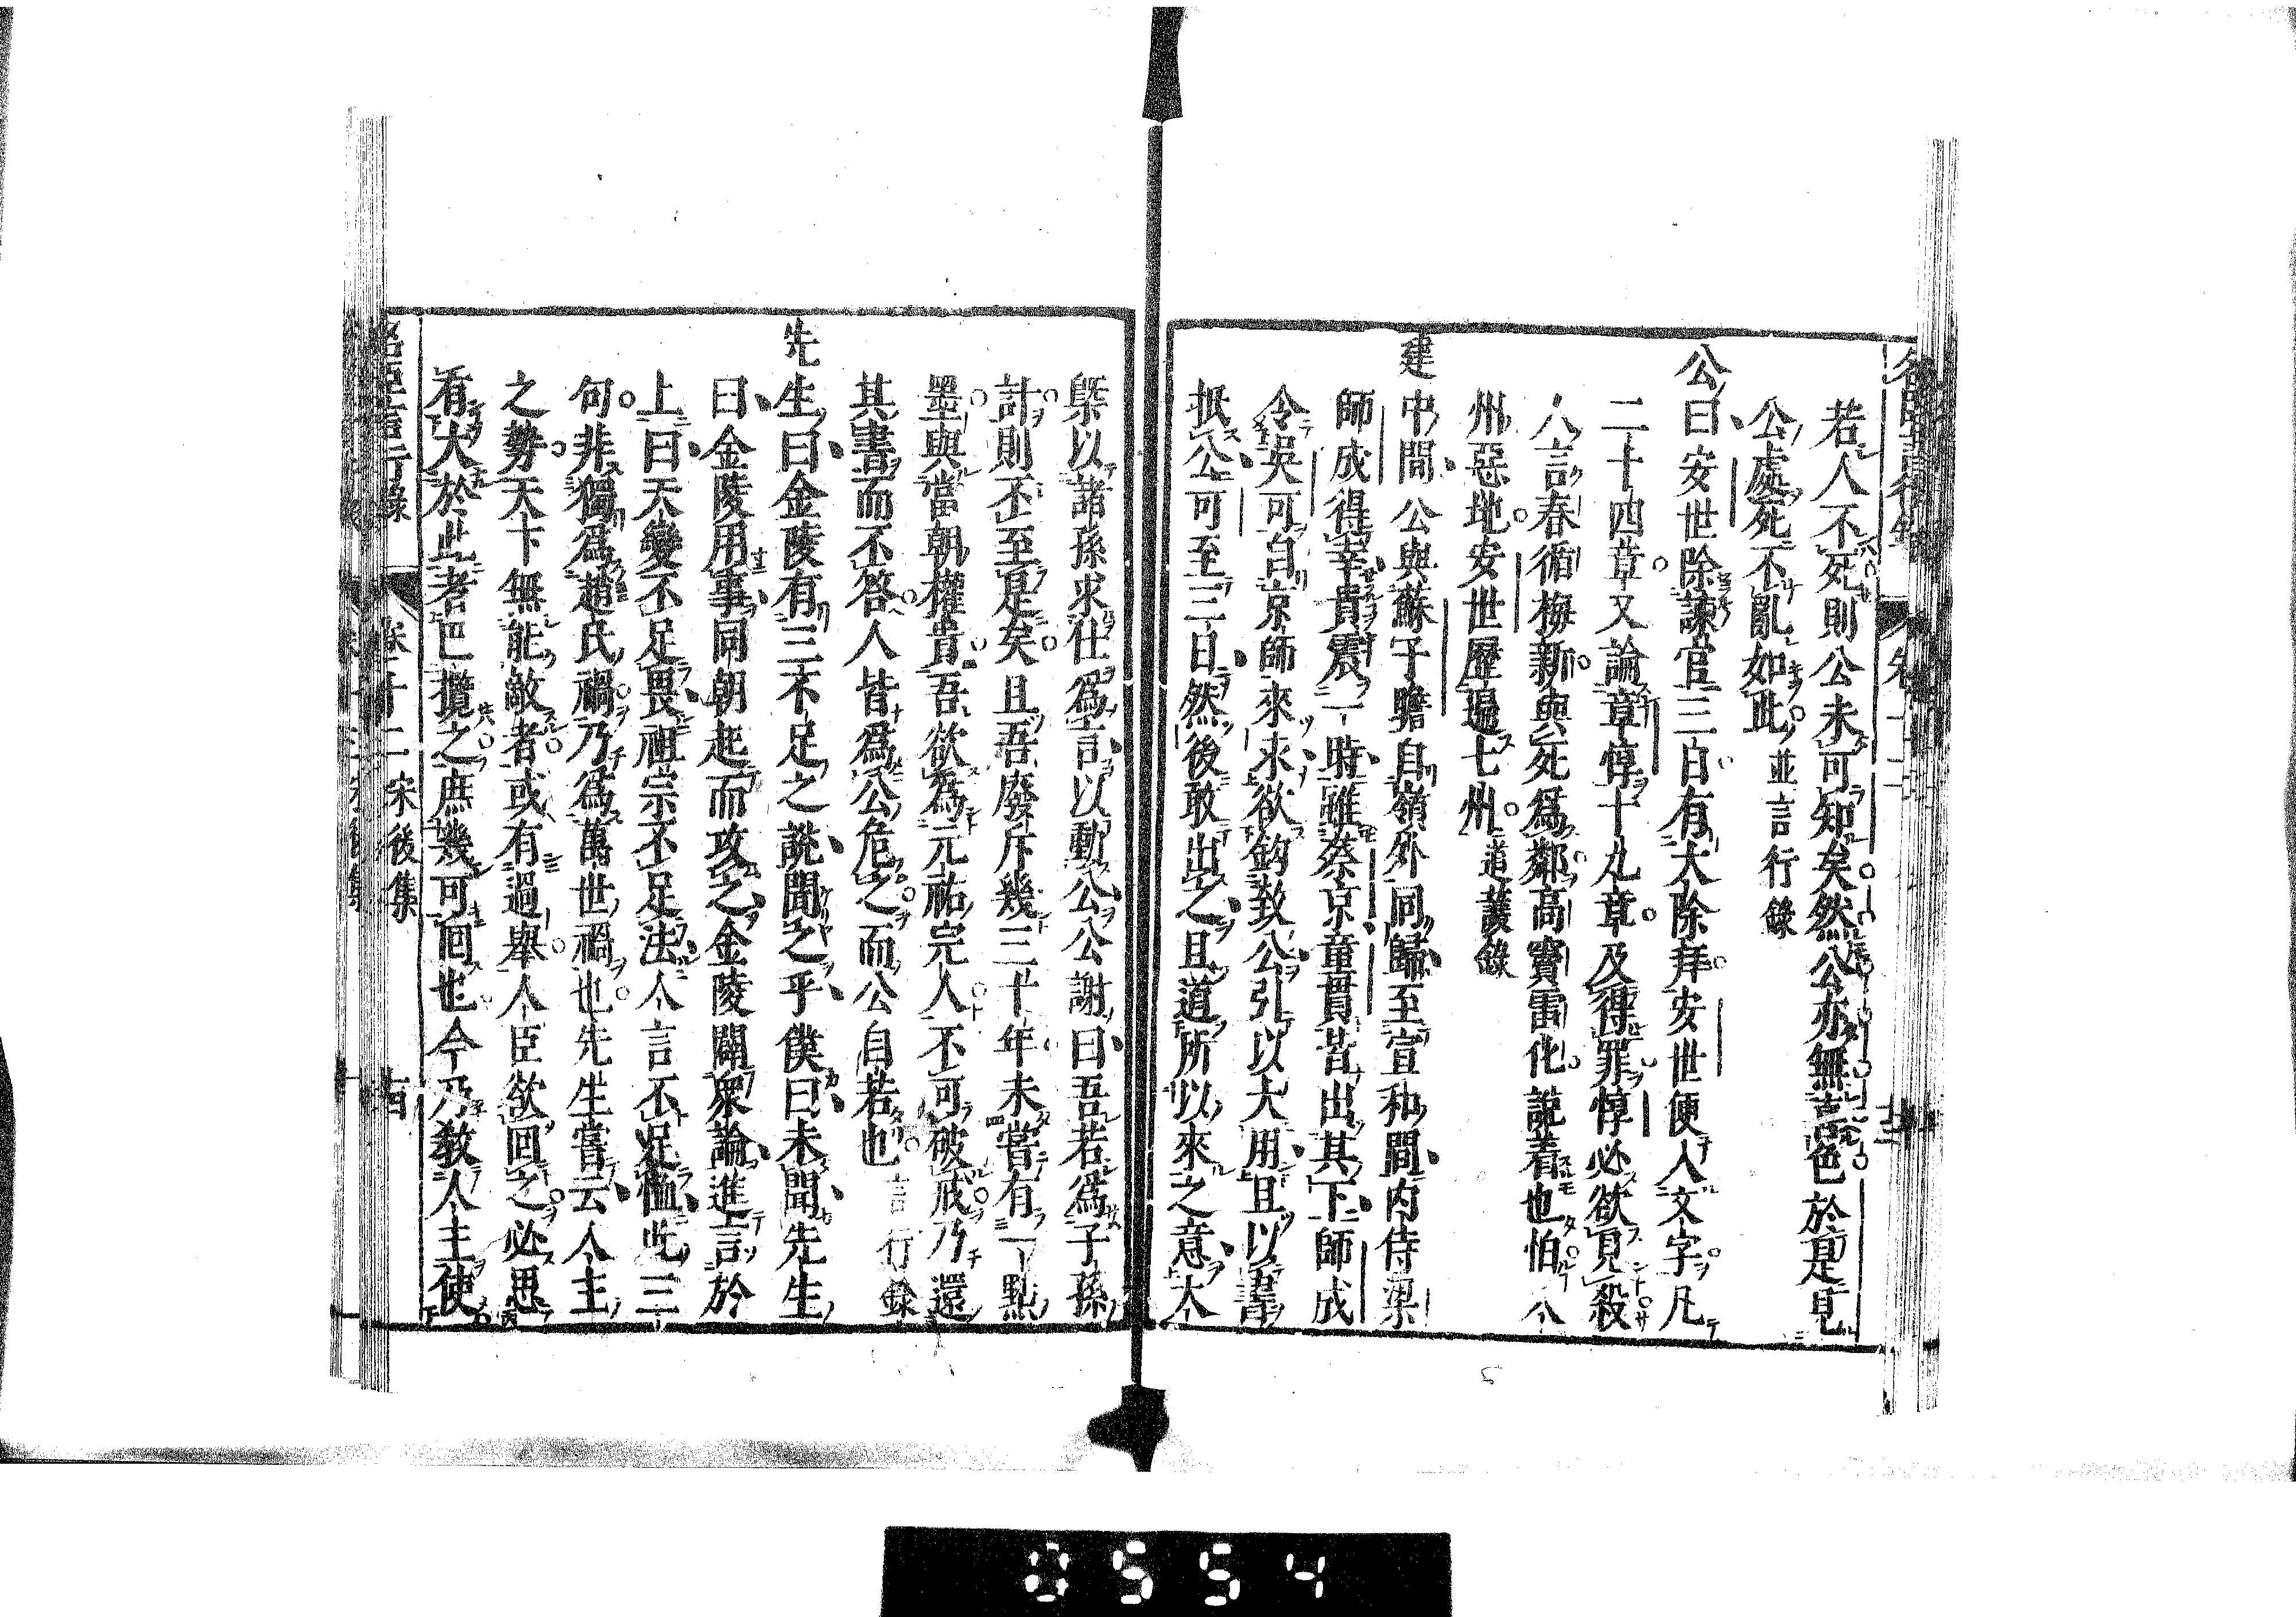 若人不死則公未可知矣然公亦無喜色於是見
公處死不亂如此並言行錄
公曰安世除諫官三日有大除拜安世便入文字凡
二十四章又論章惇十九章及得罪惇必欲見殺
人言春循梅新與死爲鄰高竇雷化說着也怕八
州惡地安世歷遍七州道護錄
建中間公與蘇子瞻自嶺外同歸至宣和間内侍梁
師成得幸貴震一時雖蔡京童貫皆出其下師成
令吳可自京師來求欲鈎致公引以大用且以書
抵公可至三日然後敢出之且道所以來之意大
槩以諸孫求仕爲言以動公公謝曰吾若爲子孫
計則不至是矣且吾廢斥幾三十年未嘗有一點
墨與當朝權貴吾欲爲元祐完人不可破戒乃還
其書而不答人皆爲公危之而公自若也言行錄
先生曰金陵有三不足之說聞之乎僕曰未聞先生
曰金陵用事同朝起而攻之金陵闢衆論進言於
上曰天變不足畏祖宗不足法人言不足恤此三
句非獨爲趙氏禍乃爲萬世禍也先生嘗云人主
之勢天下無能敵者或有過舉人臣欲回之必思
有大於此者巴攬之庶幾可回也今乃教人主使
卷十二宋後集